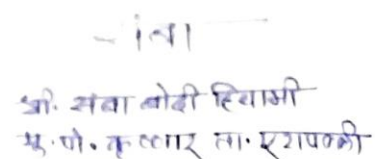 श्री. संवा बोदी हिचामी
मु. पो. कुल्लार ता. एटापल्ली